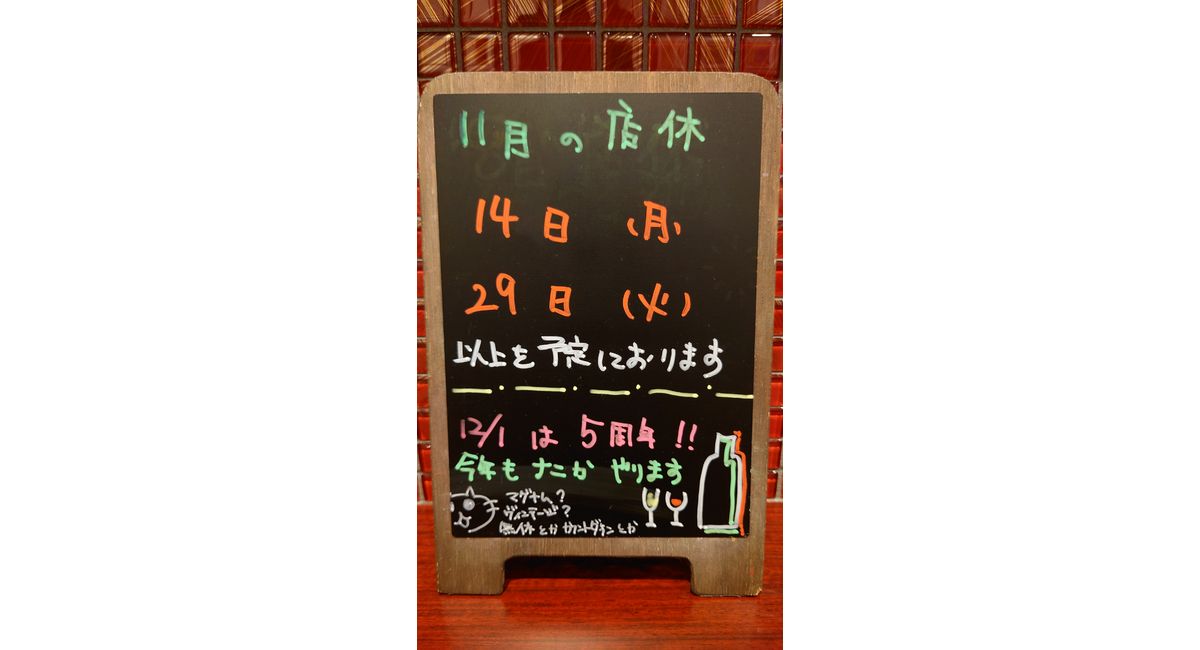 11月の店休
14日 (月)
29日 (火)
以上を予定しております
12/1 は 5周年!!
今年も ナニか やります
マグナム?
ヴィンテージ?
無休とか カウントダウンとか